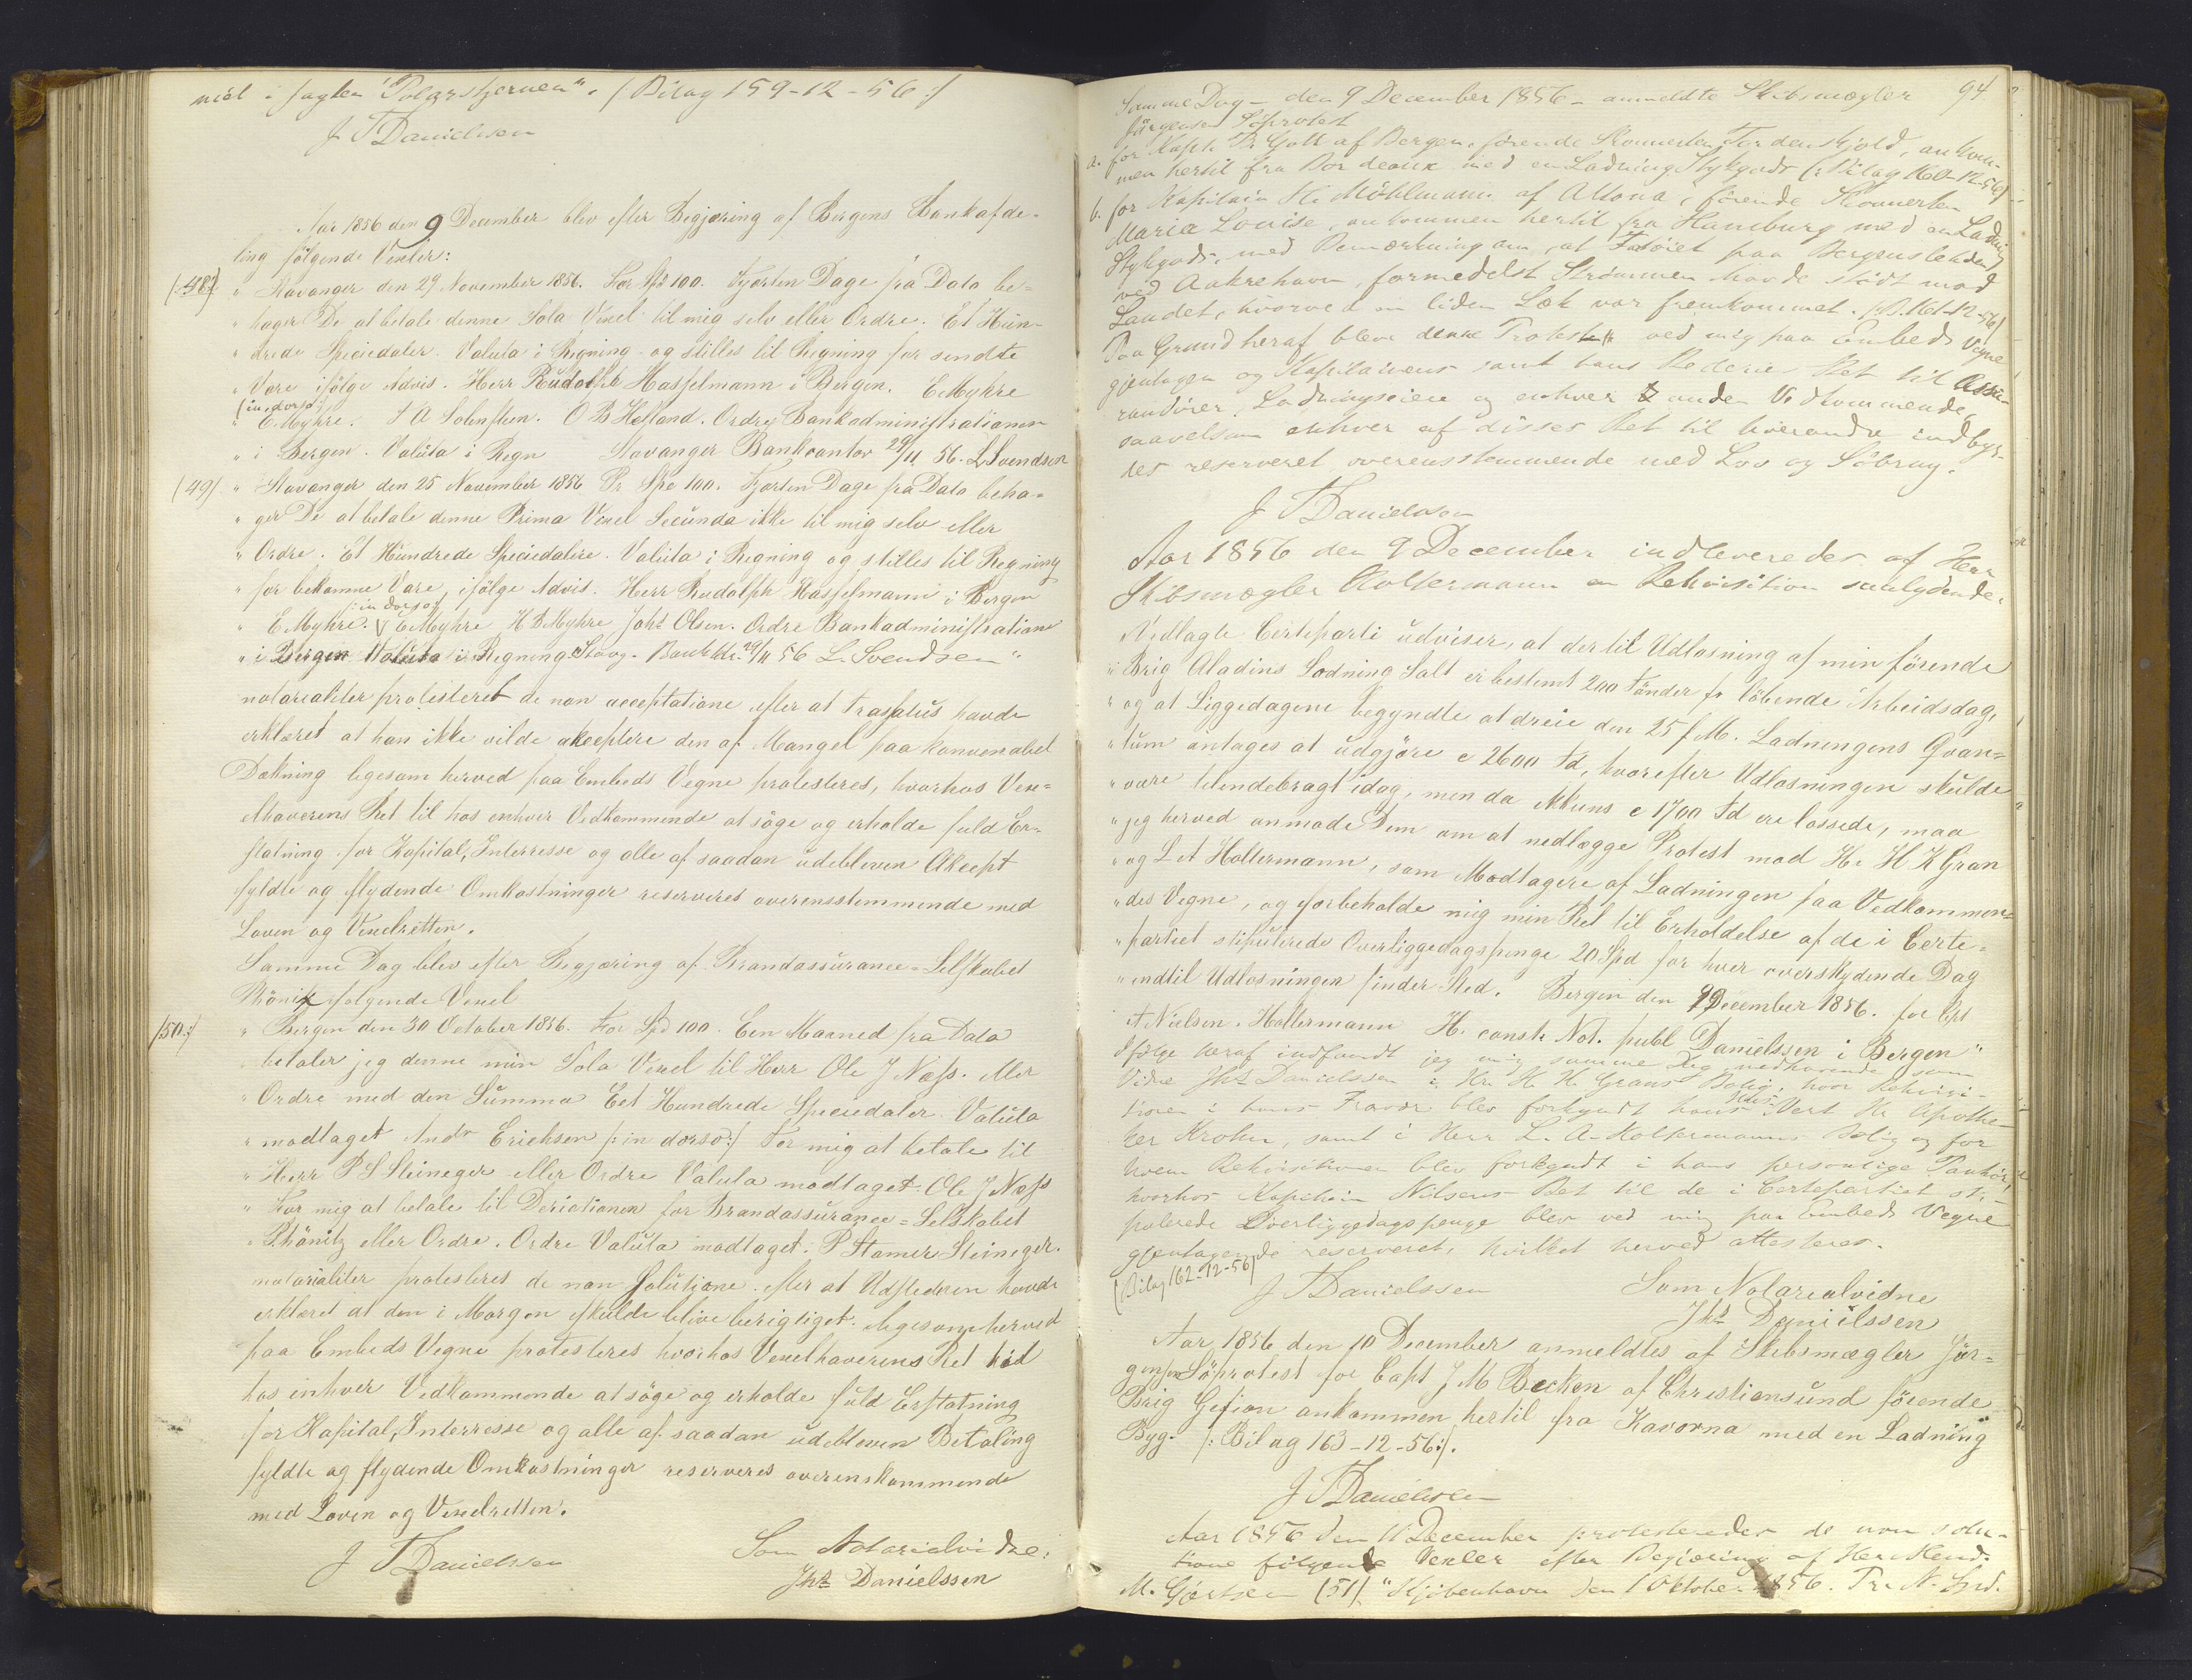 niel i Jagten "Polarstjernen". /Bilag 159-12-56:/
J T Danielssen
Aar 1856 den 9 December blev efter Begjæring af Bergens Bankafde-
ling følgende Vexler:
/:48:/ " Stavanger den 29 November 1856. For Spd 100. Fjorten Dage fra Dato be-
" hager De at betale denne Sola Vexel til mig selv eller Ordre. Et Hun-
" drede Speciedaler. Valuta i Regning og stilles til Regning for sendte
" Vare ifølge Advis. Herr Rudolph Hasselmann i Bergen. E Myhre
(in dorso:)
" E. Myhre. T A Solensteen. O B Hefland. Ordre Bankadministrationen
" i Bergen. Valuta i Regn Stavanger Bankcontor 29/11 56. L Svendsen
/49/ " Stavanger den 25 November 1856 Pr Spd 100. Fjorten Dage fra Dato beha-
" ger De at betale denne Prima Vexel Secunda ikke til mig selv eller
" Ordre. Et Hundrede Speciedalere. Valuta i Regning og stilles til Regning
" for bekomne Vare, ifølge Advis. Herr Rudolph Hasselmann i Bergen
:in dorso:
" E Myhre. E Myhre H B Myhre Johs Olsen. Ordre Bankadministratione
" i Bergen Valuta i Regning Stavg. Bankkt. 29/11 56 L. Svendsen"
notarialiter protesteret de non acceptatione efter at Trassatus havde
erklæret at han ikke vilde akceptere den af Mangel paa konvenabel
Dækning ligesom herved paa Embeds Vegne protesteres, hvorhos Vex-
elhaverens Ret til hos enhver Vedkommende at søge og erholde fuld Er-
statning for Kapital, Interresse og alle af saadan udebleven Akcept
fyldte og flydende Omkostninger reserveres overensstemmende med
Loven og Vexelretten.
Samme Dag blev efter Begjæring af Brandassurance-Selskabet
Phønix følgende Vexel
/50:/ " Bergen den 30 October 1856. For Spd 100. Een Maaned fra Dato
" betaler jeg denne min Sola Vexel til Herr Ole J Næss. eller
" Ordre med den Summa Eet Hundrede Speciedaler. Valuta
" modtaget Andr Erichsen /:in dorso:/ For mig at betale til
" Herr P S Steineger eller Ordre Valuta modtaget. Ole J Næss
" For mig at betale til Derictionen for Brandassurance-Selskabet
" Phønitz eller Ordre. Ordre Valuta modtaget: P Stamer Steineger.
notarialiter protesteres de non Solutione. efter at Udstederen havde
erklæret at den i Morgen skulde blive berigtiget. ligesom herved
paa Embeds Vegne protesteres hvorhos Vexelhaverens Ret til
hos enhver Vedkommende at søge og erholde fuld Erstatning
for Kapital, Interresse og alle af saadan udebleven Betaling
fyldte og flydende Omkostninger reserveres overenskommende
med Loven og Vexelretten.
J T Danielssen Som Notarialvidne:
Jhs Danielssen
94
Samme Dag - den 9 December 1856 - anmeldte Skibsmægler
Jørgensen Søprotest
a. for Kapt. Gall af Bergen, førende Skonnerten Tordenskjold, ankom-
men hertil fra Bordeaux med en Ladning Stykgods (:Bilag 160-12-56)
b. for Kapitain H. Möhlmann af Altona, førende Skonnerten
Maria Louise, ankommen hertil fra Hamburg med en Ladning
Stykgods, med Bemærkning om, at Fartøiet paa Bergensleden
ved Aakrehavn, formedelst Strømmen havde stødt mod
Landet, hvorved en liden Læk var fremkommet. (:B. 161-12-56)
Paa Grund heraf blev denne Protest ved mig paa Embeds Vegne
gjentagen og Kapitainens samt hans Rederies Ret til Assu-
randører, Ladningseiere og enhver anden Vedkommende,
saavelsom enhver af disses Ret til hverandre indbyr-
des reserveret overensstemmende med Lov og Søbrug.
J T Danielssen
Aar 1856 den 9 December indleveredes af Herr
Skibsmægler Holtermann en Rekvisition saalydende:
Vedlagte Certeparti udviser, at der til Udlosning af min førende
" Brig Aladins Ladning Salt er bestemt 200 Tønder pr løbende Arbeidsdag,
" og at Liggedagene begyndte at dreie den 25 f. M. Ladningens Qvan-
" tum antages at udgjøre c 2600 Td, hvorefter Udlosningen skulde
" være tilendebragt idag, men da ikkuns c 1700 Td ere lossede, maa
" jeg herved anmode Dem om at nedlægge Protest mod Hr H K Gran
" og L A Holtermann, som Modtagere af Ladningen paa Vedkommen-
" des Vegne, og forbeholde mig min Ret til Erholdelse af de i Certe-
" partiet stipulerede Overliggedagspenge 20 Spd for hver overskydende Dag
" indtil Udlosningen finder Sted. Bergen den 9 December 1856. for Cpt
A Nielsen. Holtermann H. const. Not. publ Danielssen i Bergen"
Ifølge heraf indfandt jeg mig samme Dag medhavende som
Vidne Jhs Danielssen i Hr. H. K. Grans Bolig, hvor Rekvisi-
tionen i hans Fravær blev forkyndt hans Huus-Vert Hr Apothe-
ker Krohn, samt i Herr L. A. Holtermanns Bolig og for
hvem Rekvisitionen blev forkyndt i hans personlige Paahør,
hvorhos Kapitain Nilsens Ret til de i Certepartiet sti-
pulerede Overliggedagspenge blev ved mig paa Embeds Vegne
gjentagende reserveret, hvilket herved attesteres.
(Bilag 162-12-56)
J T Danielssen Som Notarialvidne
Jhs Danielssen
Aar 1856 den 10 December anmeldtes af Skibsmægler Jør-
gensen Søprotest for Capt J M Becken af Christiansund førende
Brig Gefion ankommen hertil fra Kavorna med en Ladning
Byg. /:Bilag 163-12-56:/.
J T Danielssen
Aar 1856 den 11 December protesteredes de non solu-
tione følgende Vexler efter Begjæring af Her Mend.
M. Gjertsen (51) "Kjøbenhavn den 1 Oktober 1856. Pr. N. Spd.